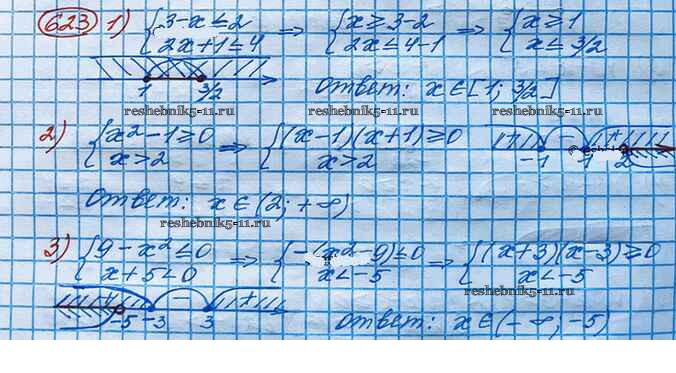 623 1) {3-x≤2 ⇒ {x≥3-2 ⇒ {x≥1
{2x+1≤4 {2x≤4-1 {x≤3/2
1 3/2 Ответ: x∈[1; 3/2]
reshebnik5-11.ru reshebnik5-11.ru reshebnik5-11.ru
2) {x²-1≥0 ⇒ {(x-1)(x+1)≥0 + - +
{x>2 {x>2 -1 1 2
Ответ: x∈(2; +∞)
reshebnik5-11.ru
3) {9-x²≤0 ⇒ {-(x²-9)≤0 ⇒ {(x+3)(x-3)≥0
{x+5<0 {x<-5 {x<-5
reshebnik5-11.ru
+ - +
-5 -3 3 Ответ: x∈(-∞; -5)